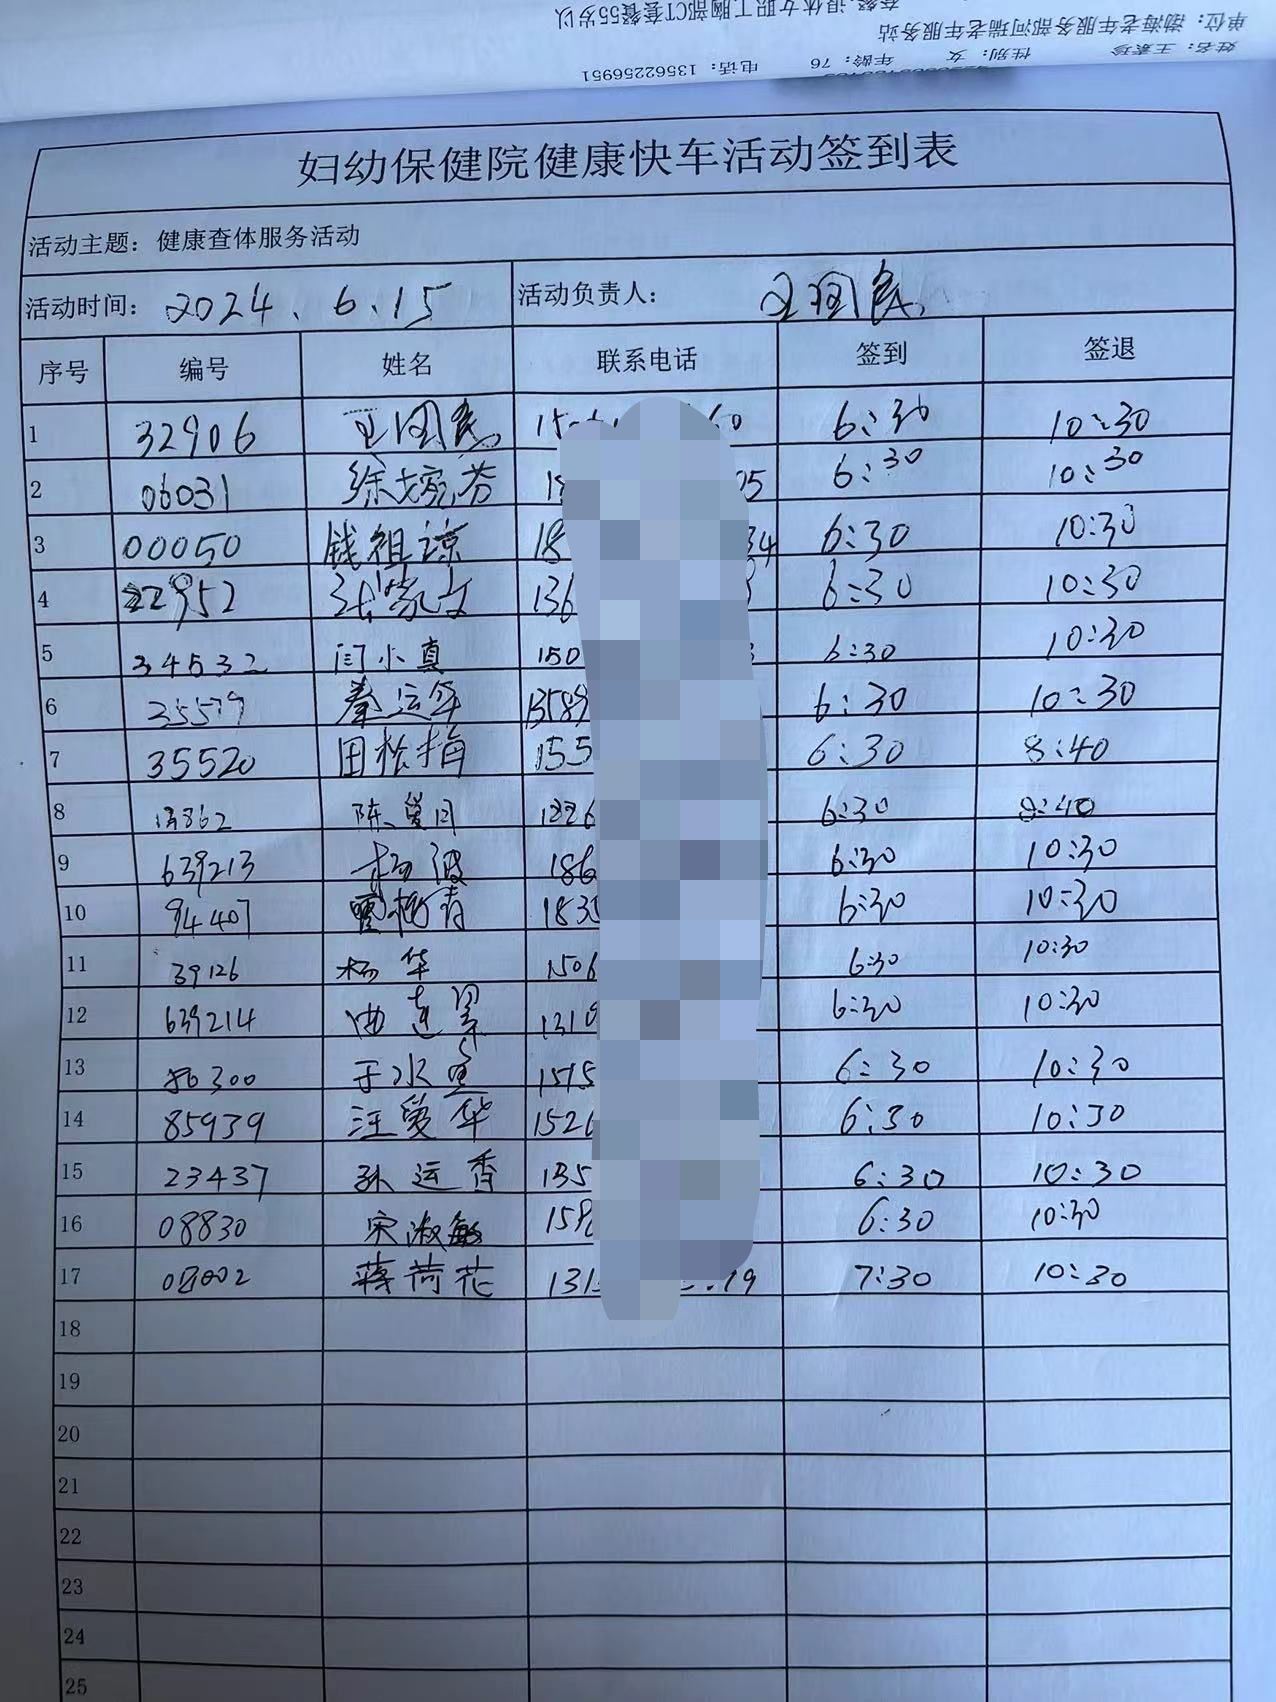 套餐：退休女职工胸部CT套餐55岁以
单位：渤海老年服务部河瑞老年服务站
姓名：王素珍 性别：女 年龄：76 电话：13562256951
妇幼保健院健康快车活动签到表
活动主题：健康查体服务活动
活动时间：2024.6.15 活动负责人：王国民
序号 编号 姓名 联系电话 签到 签退
1 32906 王国民 6:30 10:30
2 06031 徐婉芬 05 6:30 10:30
3 00050 钱祖谅 18 34 6:30 10:30
4 张蒙文 136 6:30 10:30
5 34532 闫小真 150 6:30 10:30
6 35579 秦运华 1358 6:30 10:30
7 35520 田松梅 155 6:30 8:40
8 陈爱月 6:30 8:40
9 639213 杨波 186 6:30 10:30
10 94407 6:30 10:30
11 39126 杨华 1506 6:30 10:30
12 639214 曲连翠 1318 6:30 10:30
13 于水 1515 6:30 10:30
14 85939 汪爱华 1526 6:30 10:30
15 23437 孙运香 135 6:30 10:30
16 08830 宋淑敏 158 6:30 10:30
17 蒋荷花 131 19 7:30 10:30
18
19
20
21
22
23
24
25